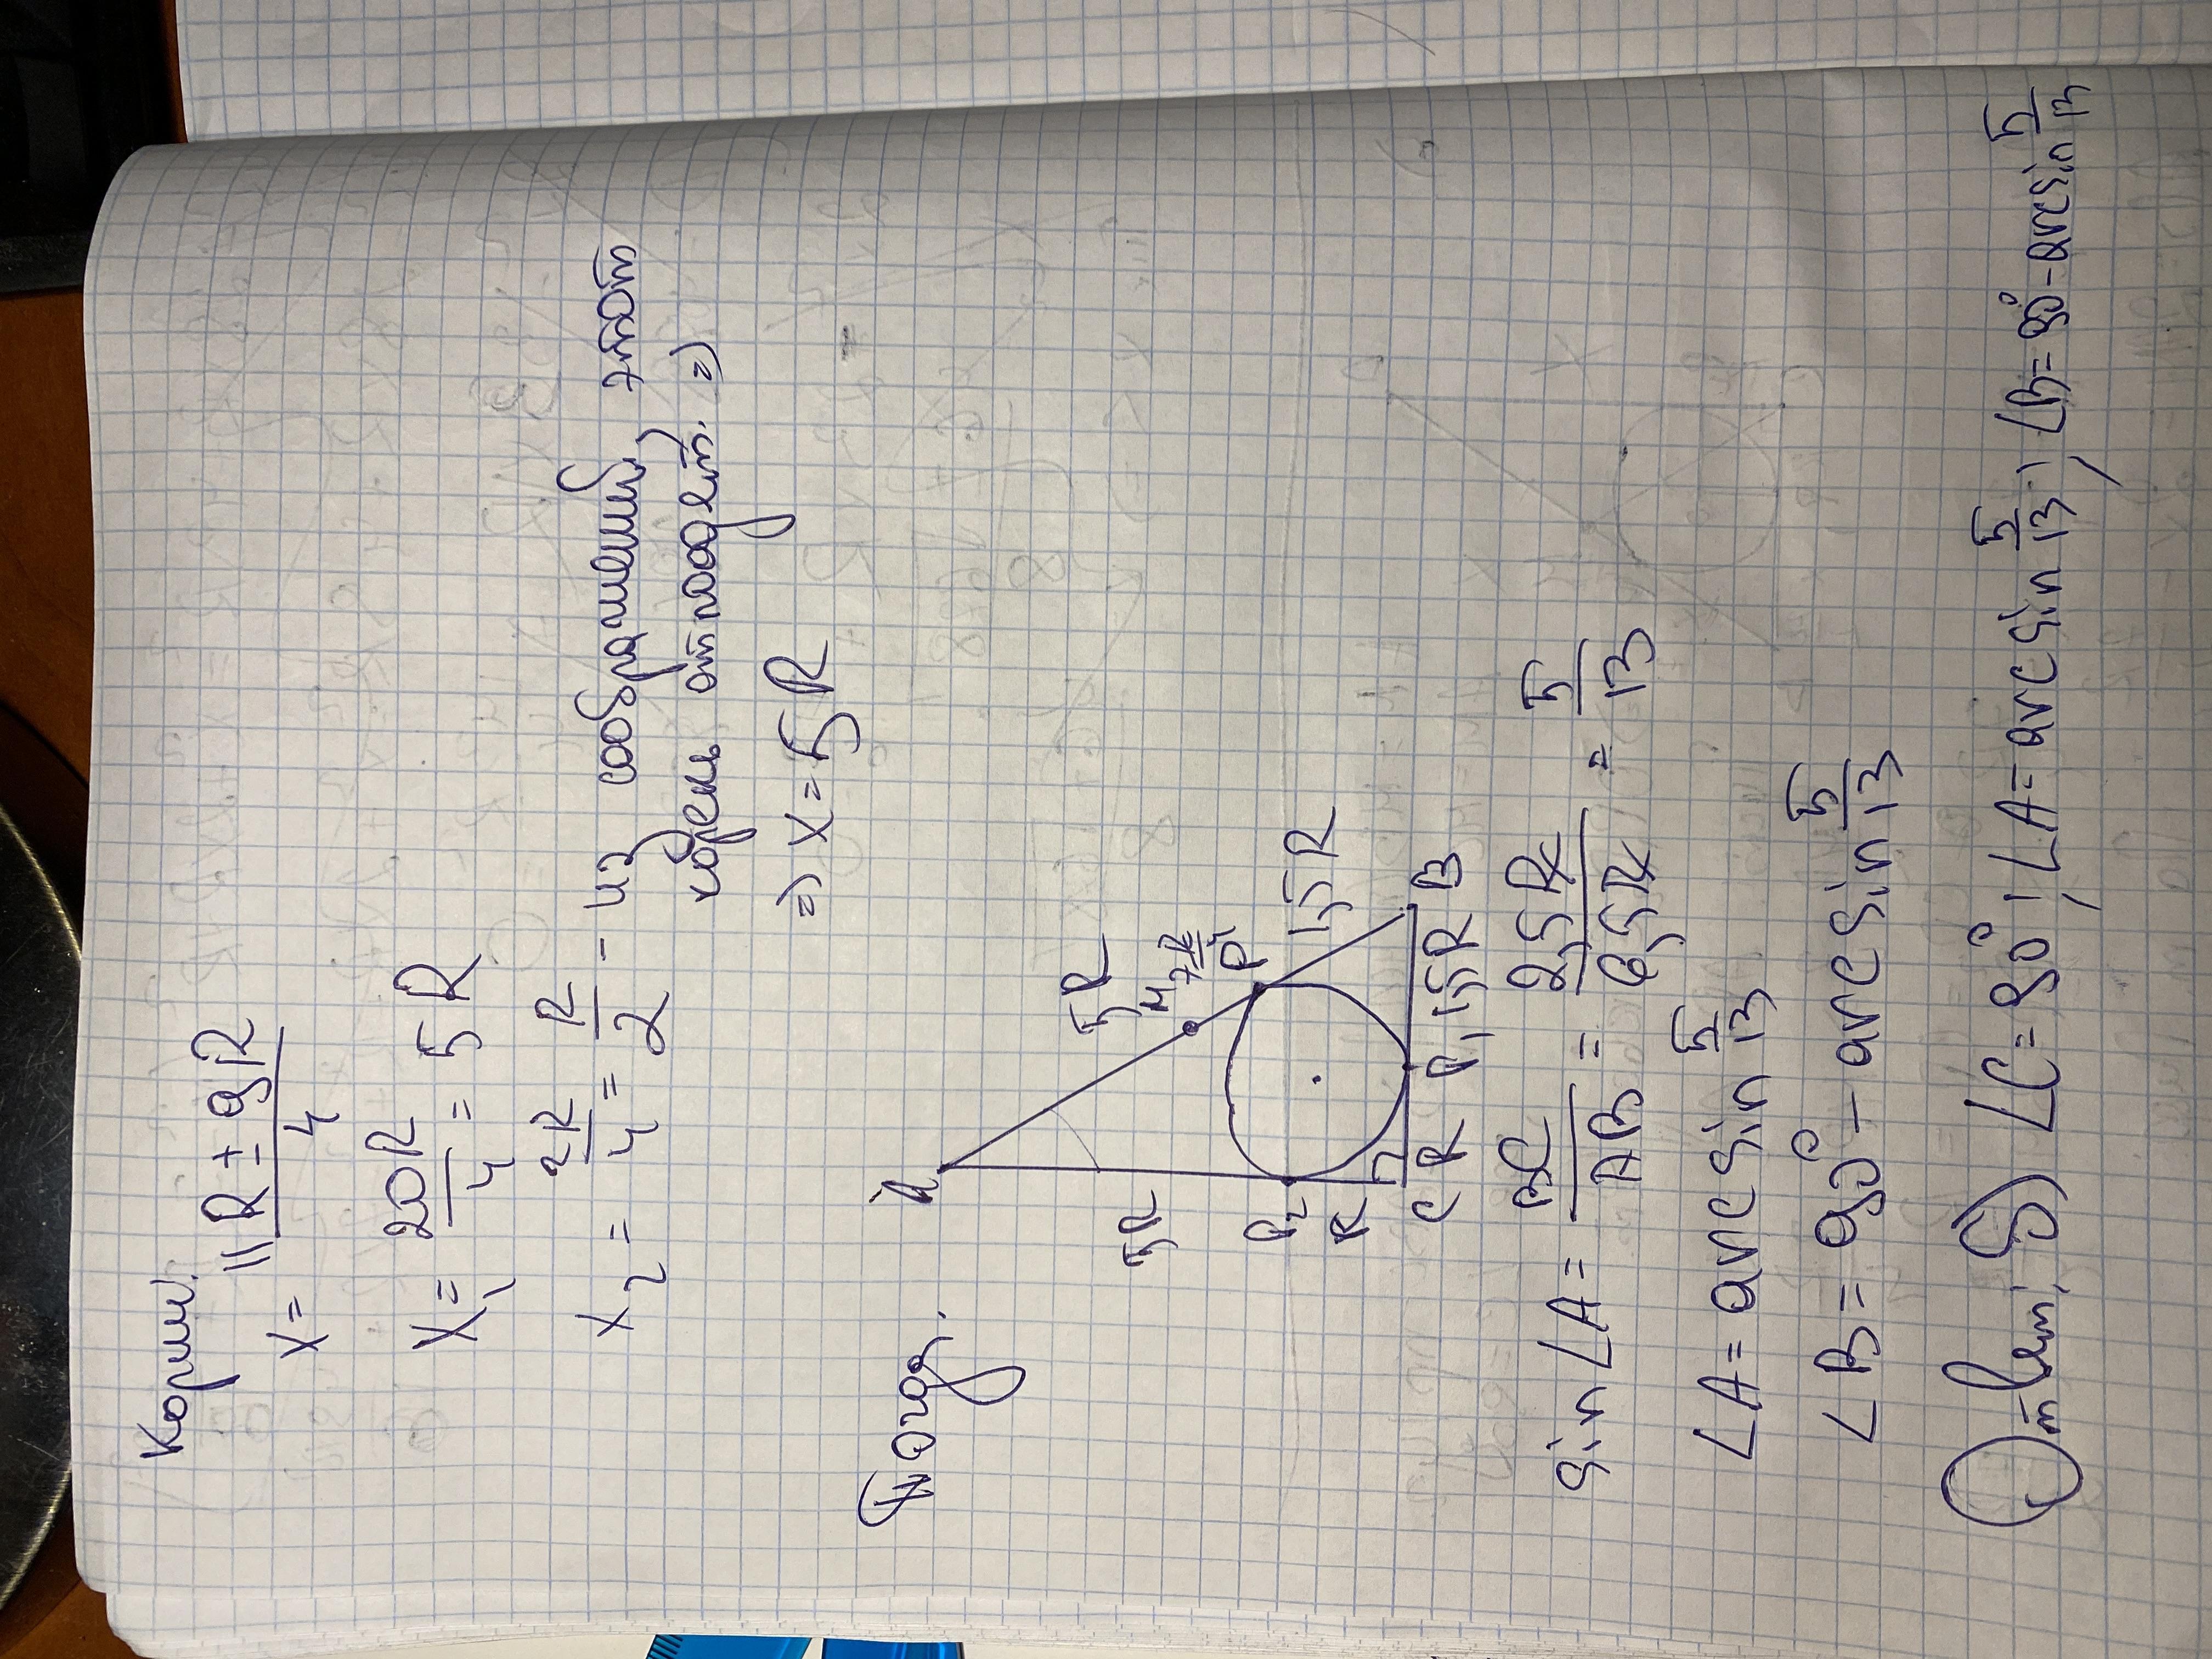 Корни:
x = \frac{11R ± 9R}{4}
x_1 = \frac{20R}{4} = 5R
x_2 = \frac{2R}{4} = \frac{R}{2} - из соображений, этот
корень отпадет. =>
=> x = 5R
A
5R
M
P_1
5R
1,5R
P_2
R
C R P 1,5R B
sin ∠A = \frac{BC}{AB} = \frac{2,5R}{6,5R} = \frac{5}{13}
∠A = arcsin \frac{5}{13}
∠B = 90° - arcsin \frac{5}{13}
Ответ: ∠C = 90°; ∠A = arcsin \frac{5}{13}; ∠B = 90° - arcsin \frac{5}{13}